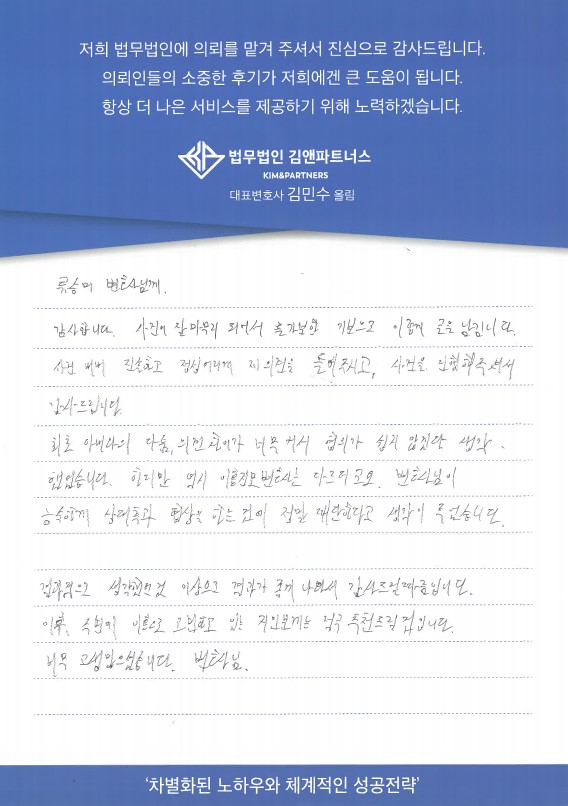 저희 법무법인에 의뢰를 맡겨 주셔서 진심으로 감사드립니다.
의뢰인들의 소중한 후기가 저희에겐 큰 도움이 됩니다.
항상 더 나은 서비스를 제공하기 위해 노력하겠습니다.
법무법인 김앤파트너스
KIM&PARTNERS
대표변호사 김민수 올림
류승미 변호사님께.
감사합니다. 사건이 잘 마무리 되어서 홀가분한 기분으로 이렇게 글을 남깁니다.
사건 내내 진솔하고 정성어리게 제 의견을 들어주시고, 사건을 진행해주셔서
감사드립니다
최초 아내와의 다툼, 의견 차이가 너무 커서 협의가 쉽지 않겠단 생각
했었습니다. 하지만 역시 이혼전문변호사는 다르더군요. 변호사님이
능숙하게 상대측과 협상을 하는 것에 정말 대단하다고 생각이 들었습니다.
결과적으로 생각했던 것 이상으로 결과가 좋게 나와서 감사드릴 따름입니다.
이후, 주변에 이혼으로 고민하고 있는 지인분께는 적극 추천드릴겁니다.
너무 고생많으셨습니다. 변호사님.
'차별화된 노하우와 체계적인 성공전략'